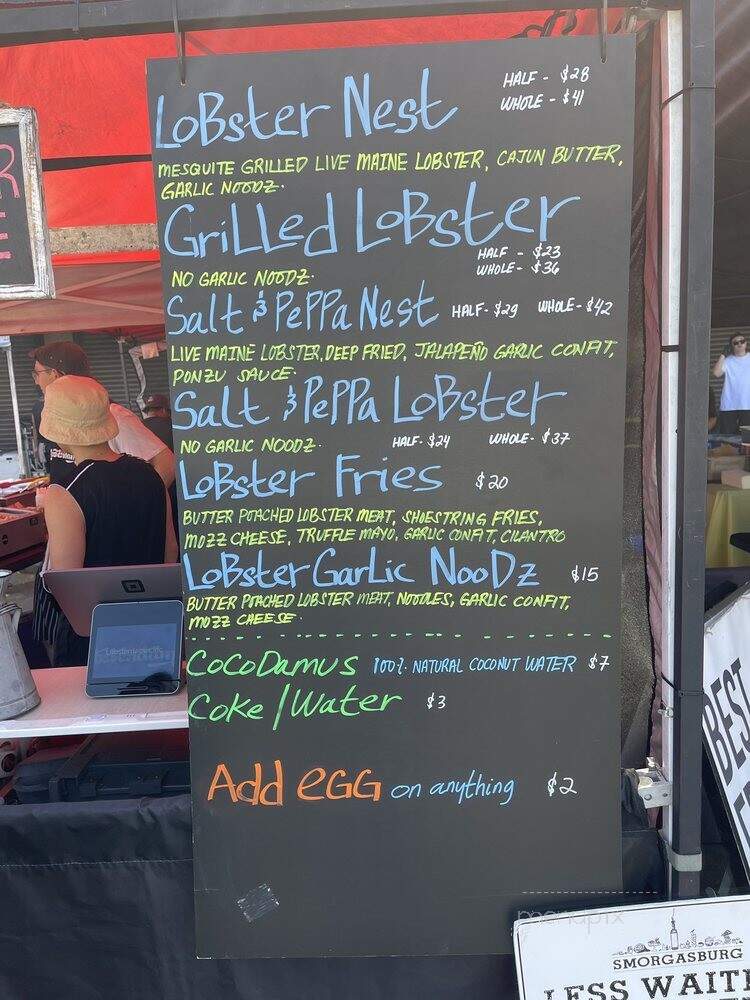 LoBster Nest
HALF - $28
WHOLE - $41
MESQUITE GRILLED LIVE MAINE LOBSTER, CAJUN BUTTER,
GARLIC NOODZ.
GriLLed LoBster
HALF - $23
WHOLE - $36
NO GARLIC NOODZ.
Salt & PePPa Nest HALF - $29 WHOLE - $42
LIVE MAINE LOBSTER, DEEP FRIED, JALAPEÑO GARLIC CONFIT,
PONZU SAUCE.
Salt & PePPa LoBster
NO GARLIC NOODZ. HALF - $24 WHOLE - $37
LoBster Fries $20
BUTTER POACHED LOBSTER MEAT, SHOESTRING FRIES,
MOZZ CHEESE, TRUFFLE MAYO, GARLIC CONFIT, CILANTRO
LoBster GarLic NooDz $15
BUTTER POACHED LOBSTER MEAT, NOODLES, GARLIC CONFIT,
MOZZ CHEESE.
CoCoDamus 100% NATURAL COCONUT WATER $7
Coke / Water $3
Add eGG on anything $2
menupix
SMORGASBURG
LESS WAIT
BEST